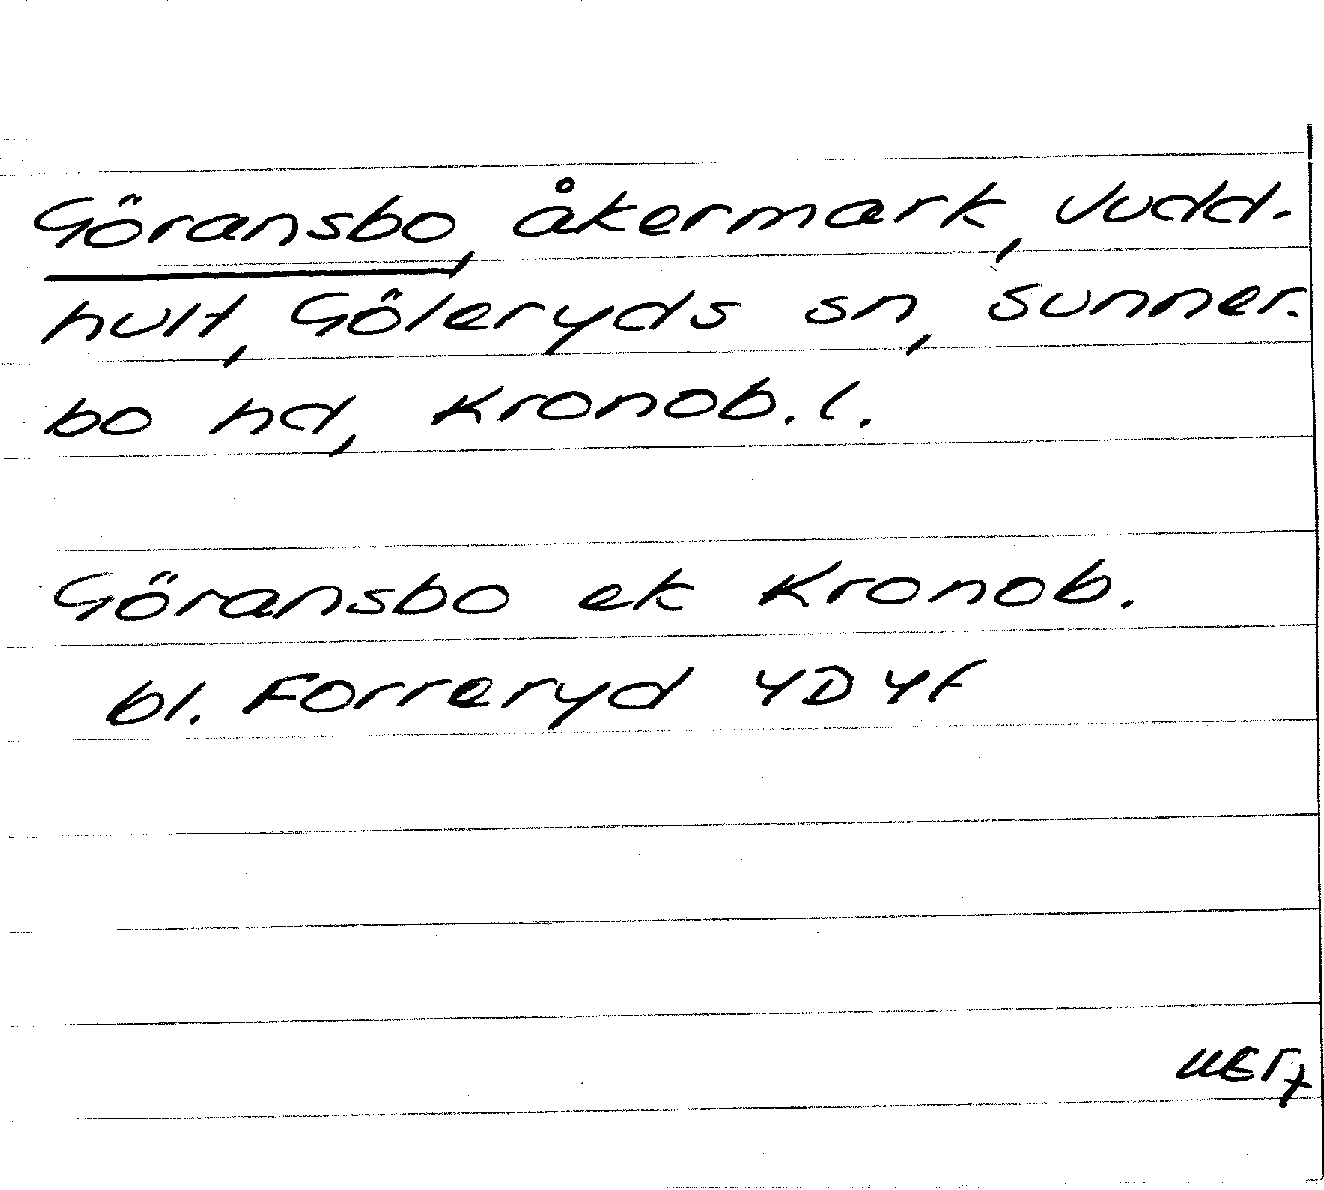 Göransbo, åkermark, Judd-
hult, Göteryds sn, Sunner-
bo hd, Kronob. l.
Göransbo ek Kronob.
bl. Forreryd 4D4f